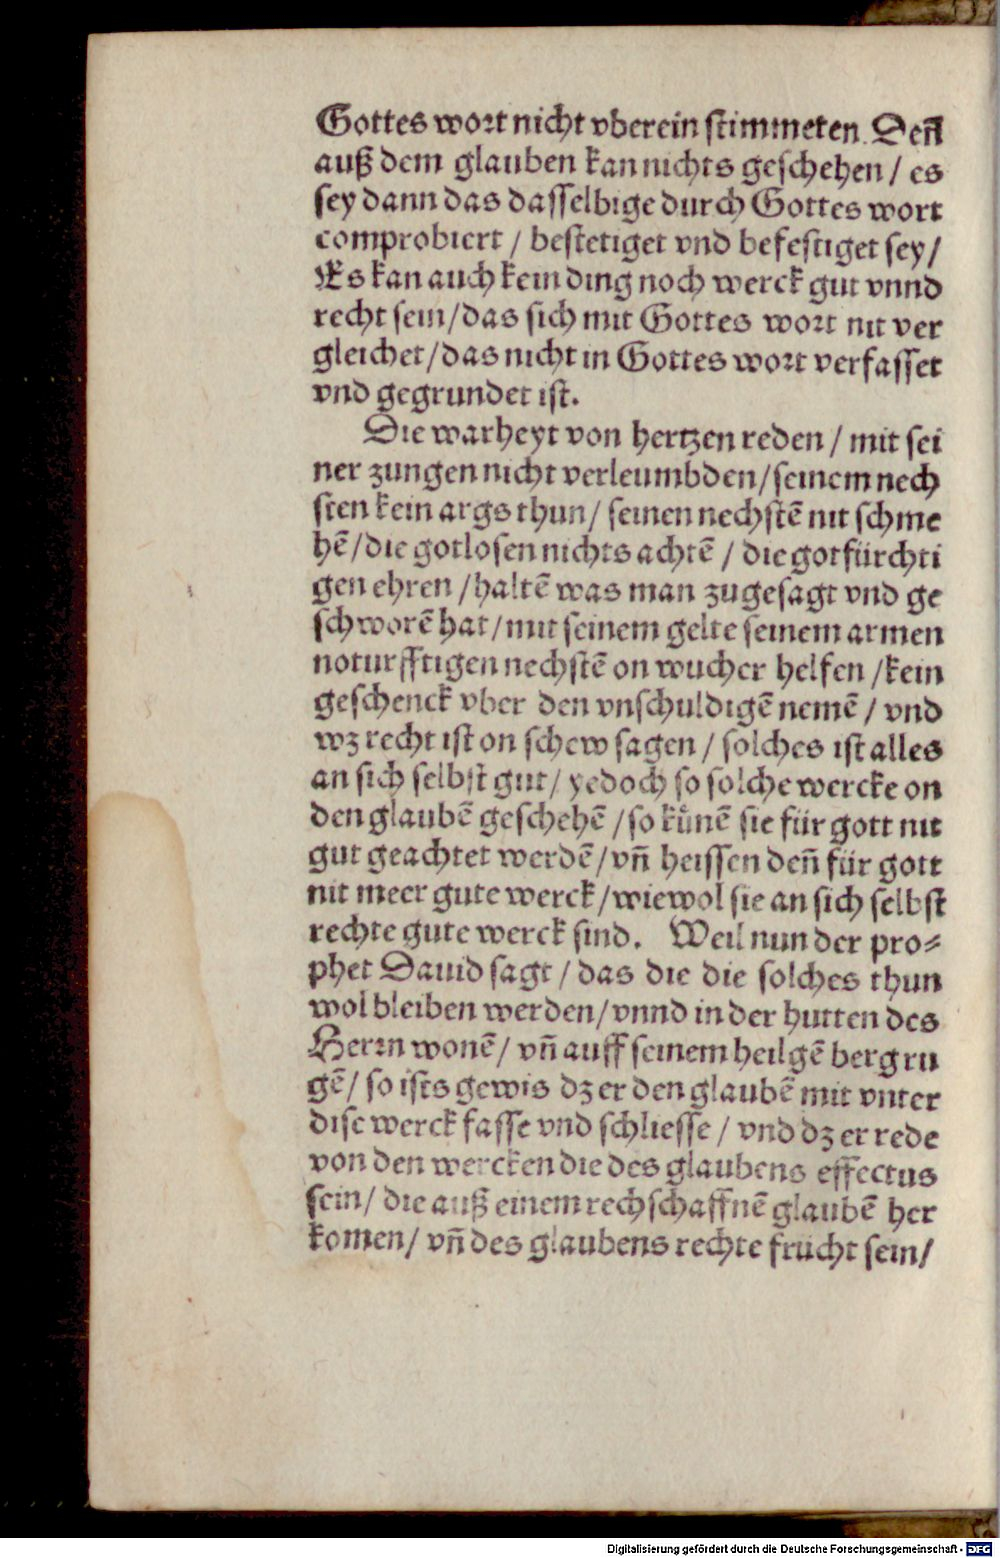 Gottes wort nicht vberein stimmeten. Deñ
auß dem glauben kan nichts geschehen / es
sey dann das dasselbige durch Gottes wort
comprobiert / bestetiget vnd befestiget sey /
Es kan auch kein ding noch werck gut vnnd
recht sein / das sich mit Gottes wort nit ver
gleichet / das nicht in Gottes wort verfasset
vnd gegrundet ist.
Die warheyt von hertzen reden / mit sei
ner zungen nicht verleumbden / seinem nech
sten kein args thun / seinen nechstẽ nit schme
hẽ / die gotlosen nichts achtẽ / die gotfürchti
gen ehren / haltẽ was man zugesagt vnd ge
schworẽ hat / mit seinem gelte seinem armen
noturfftigen nechstẽ on wucher helfen / kein
geschenck vber den vnschuldigẽ nemẽ / vnd
wz recht ist on schew sagen / solches ist alles
an sich selbst gut / yedoch so solche wercke on
den glaubẽ geschehẽ / so kůnẽ sie für gott nit
gut geachtet werdẽ / vñ heissen deñ für gott
nit meer gute werck / wiewol sie an sich selbst
rechte gute werck sind. Weil nun der pro⸗
phet Dauid sagt / das die die solches thun
wol bleiben werden / vnnd in der hutten des
Herrn wonẽ / vñ auff seinem heilgẽ berg ru
gẽ / so ists gewis dz er den glaubẽ mit vnter
dise werck fasse vnd schliesse / vnd dz er rede
von den wercken die des glaubens effectus
sein / die auß einem rechschaffnẽ glaubẽ her
komen / vñ des glaubens rechte frucht sein /
Digitalisierung gefördert durch die Deutsche Forschungsgemeinschaft - DFG